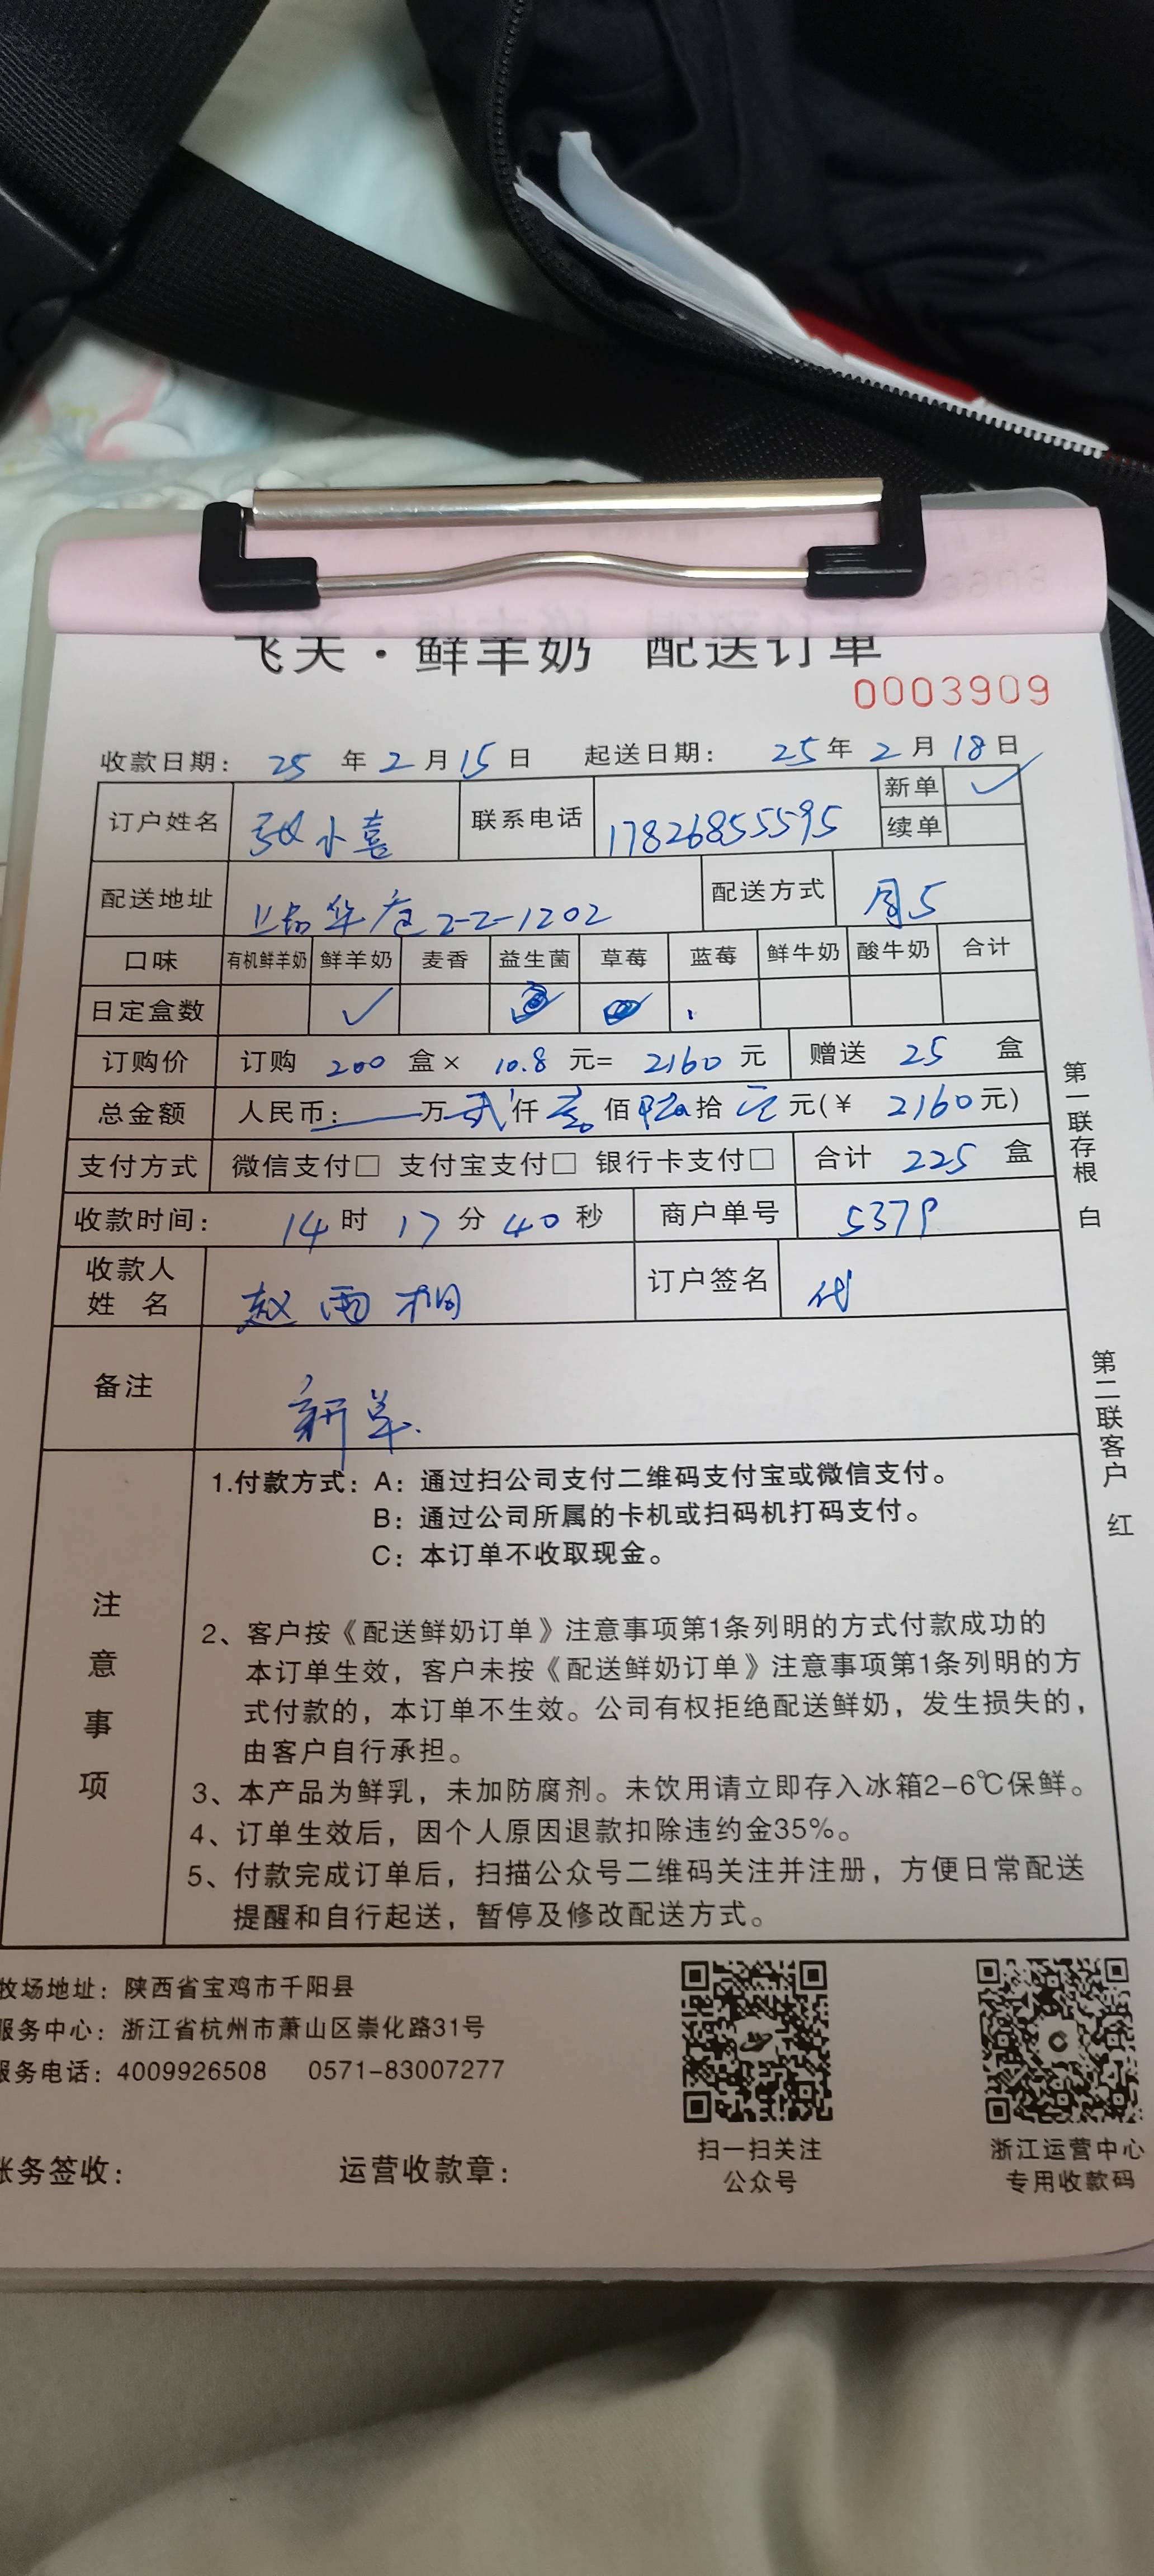 飞天·鲜羊奶 配送订单
0003909
收款日期: 25 年 2 月 15 日 起送日期: 25 年 2 月 18 日
订户姓名 张小喜 联系电话 17826855595 新单 ✓
续单
配送地址 华庭 2-2-1202 配送方式 周5
口味 有机鲜羊奶 鲜羊奶 麦香 益生菌 草莓 蓝莓 鲜牛奶 酸牛奶 合计
日定盒数 ✓
订购价 订购 200 盒× 10.8 元= 2160 元 赠送 25 盒
总金额 人民币: 万 贰 仟 壹 佰 陆 拾 元(¥ 2160元)
支付方式 微信支付□ 支付宝支付□ 银行卡支付□ 合计 225 盒
收款时间: 14 时 17 分 40 秒 商户单号 5379
收款人姓 名 赵雨桐 订户签名 代
备注 新单.
注意事项
1.付款方式: A: 通过扫公司支付二维码支付宝或微信支付。
B: 通过公司所属的卡机或扫码机打码支付。
C: 本订单不收取现金。
2、客户按《配送鲜奶订单》注意事项第1条列明的方式付款成功的
本订单生效，客户未按《配送鲜奶订单》注意事项第1条列明的方
式付款的，本订单不生效。公司有权拒绝配送鲜奶，发生损失的，
由客户自行承担。
3、本产品为鲜乳，未加防腐剂。未饮用请立即存入冰箱2-6℃保鲜。
4、订单生效后，因个人原因退款扣除违约金35%。
5、付款完成订单后，扫描公众号二维码关注并注册，方便日常配送
提醒和自行起送，暂停及修改配送方式。
第一联存根 白
第二联客户 红
牧场地址: 陕西省宝鸡市千阳县
服务中心: 浙江省杭州市萧山区崇化路31号
服务电话: 4009926508 0571-83007277
扫一扫关注
公众号
浙江运营中心
专用收款码
账务签收: 运营收款章: